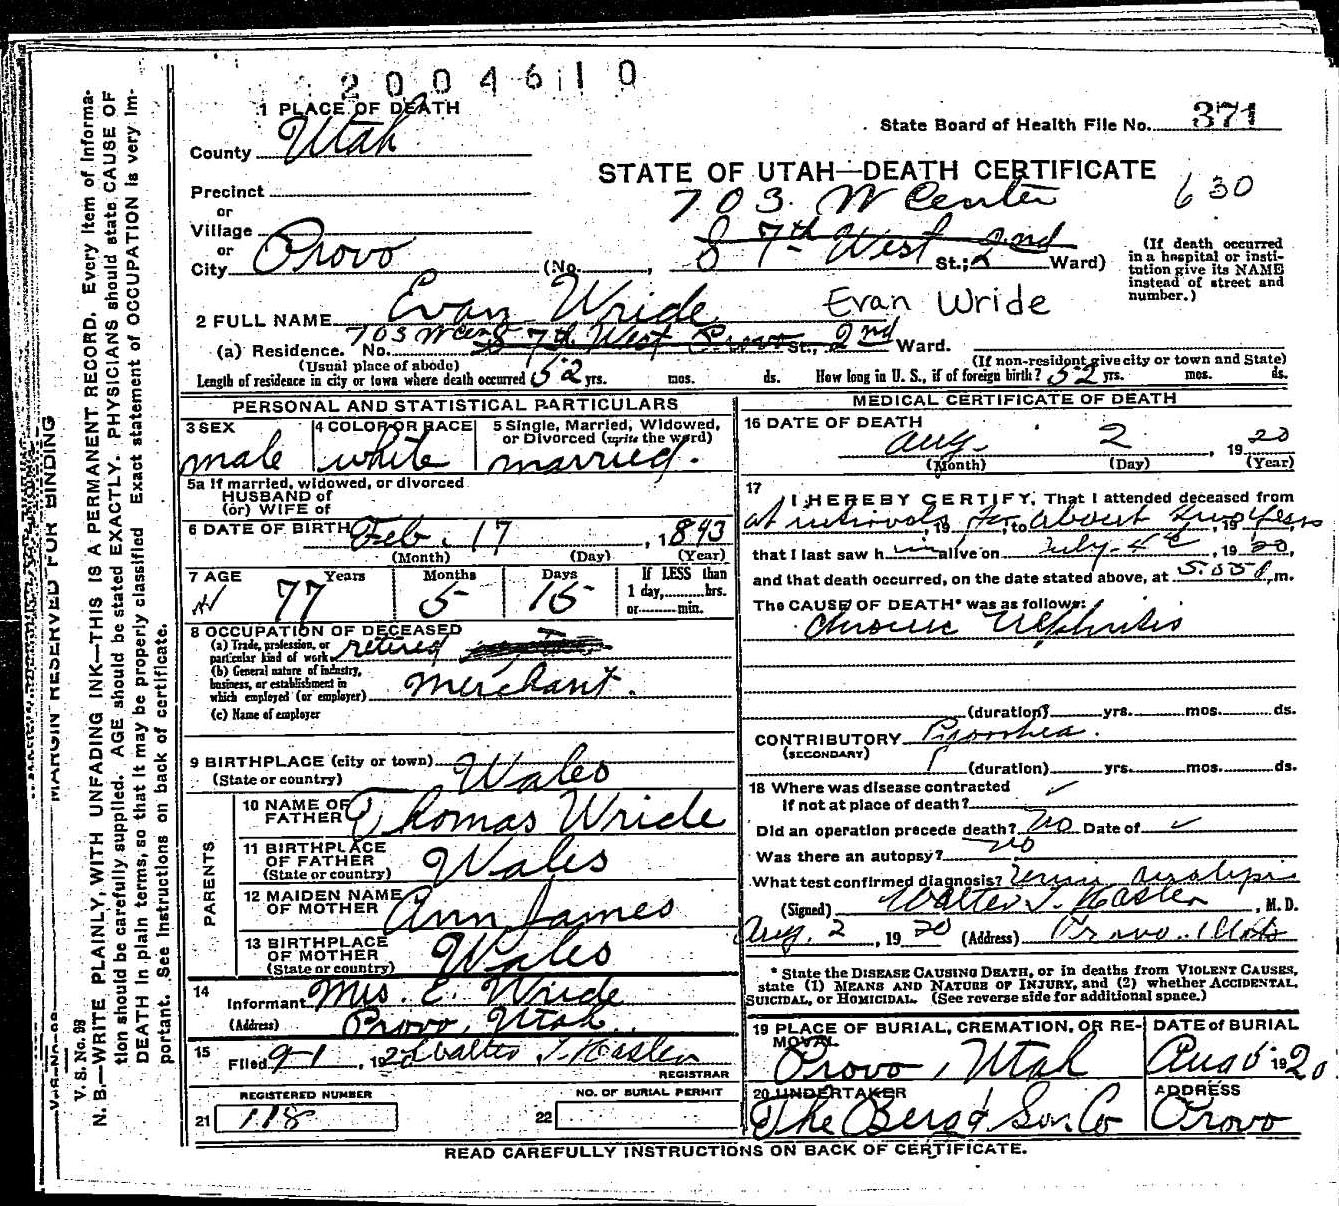 2004610
1 PLACE OF DEATH
State Board of Health File No. 371
County Utah
STATE OF UTAH—DEATH CERTIFICATE
630
Precinct
or
Village
or
City Provo
703 W Center
S 7th West 2nd
(No. , St.; 2 Ward)
(If death occurred
in a hospital or insti-
tution give its NAME
instead of street and
number.)
2 FULL NAME Evan Wride Evan Wride
(a) Residence. No. 703 W Cen S 7th West Provo St., 2nd Ward.
(Usual place of abode) (If non-resident give city or town and State)
Length of residence in city or town where death occurred 52 yrs. mos. ds. How long in U. S., if of foreign birth? 52 yrs. mos. ds.
PERSONAL AND STATISTICAL PARTICULARS
3 SEX
male
4 COLOR OR RACE
white
5 Single, Married, Widowed,
or Divorced (write the word)
married.
5a If married, widowed, or divorced
HUSBAND of
(or) WIFE of
6 DATE OF BIRTH Feb. 17, 1843
(Month) (Day) (Year)
7 AGE Years Months Days If LESS than
77 5 15 1 day, hrs.
or min.
8 OCCUPATION OF DECEASED
(a) Trade, profession, or
particular kind of work retired
(b) General nature of industry,
business, or establishment in
which employed (or employer) Merchant.
(c) Name of employer
9 BIRTHPLACE (city or town) Wales
(State or country)
PARENTS
10 NAME OF
FATHER Thomas Wride
11 BIRTHPLACE
OF FATHER Wales
(State or country)
12 MAIDEN NAME
OF MOTHER Ann James
13 BIRTHPLACE
OF MOTHER Wales
(State or country)
14
Informant Mrs. E. Wride
(Address) Provo, Utah.
15
Filed 9-1, 1920 Walter T. Hasler
REGISTRAR
REGISTERED NUMBER
21 118
NO. OF BURIAL PERMIT
22
MEDICAL CERTIFICATE OF DEATH
16 DATE OF DEATH
Aug. 2, 1920
(Month) (Day) (Year)
17
I HEREBY CERTIFY, That I attended deceased from
at intervals, 19 for, to about two years, 19
that I last saw him alive on July 4th, 1920,
and that death occurred, on the date stated above, at m.
The CAUSE OF DEATH* was as follows:
chronic Nephritis
(duration) yrs. mos. ds.
CONTRIBUTORY Pyorrhea.
(SECONDARY)
(duration) yrs. mos. ds.
18 Where was disease contracted
if not at place of death?
Did an operation precede death? No Date of
Was there an autopsy? No
What test confirmed diagnosis?
(Signed) Walter T. Hasler, M. D.
Aug. 2, 1920 (Address) Provo. Utah
* State the DISEASE CAUSING DEATH, or in deaths from VIOLENT CAUSES,
state (1) MEANS AND NATURE OF INJURY, and (2) whether ACCIDENTAL,
SUICIDAL, or HOMICIDAL. (See reverse side for additional space.)
19 PLACE OF BURIAL, CREMATION, OR RE-
MOVAL
Provo, Utah
DATE of BURIAL
Aug 5 1920
20 UNDERTAKER
The Berg & Son Co
ADDRESS
Provo
READ CAREFULLY INSTRUCTIONS ON BACK OF CERTIFICATE.
MARGIN RESERVED FOR BINDING
V. S. No. 98
N. B.—WRITE PLAINLY, WITH UNFADING INK—THIS IS A PERMANENT RECORD. Every item of informa-
tion should be carefully supplied. AGE should be stated EXACTLY. PHYSICIANS should state CAUSE OF
DEATH in plain terms, so that it may be properly classified. Exact statement of OCCUPATION is very im-
portant. See instructions on back of certificate.